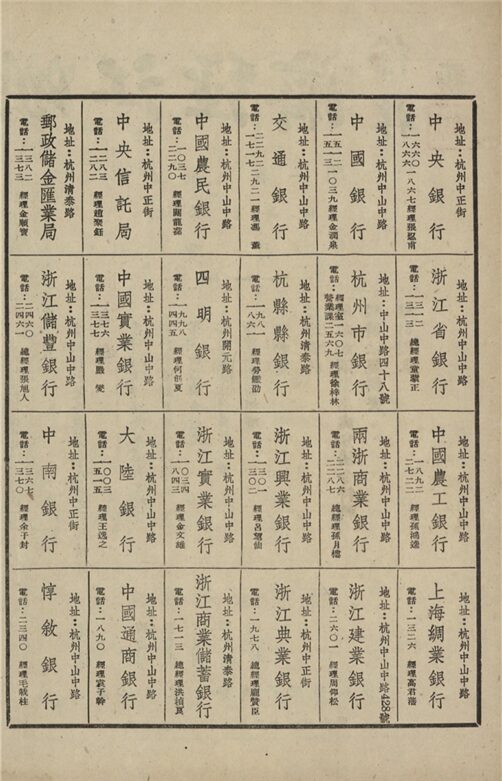 地址：杭州中正街
中央銀行
電話：一六六〇 一八六七
一八六六 經理張忍甫
地址：杭州中山中路
中國銀行
電話：一五一二 一〇三九
一五一三 經理金潤泉
地址：杭州中山中路
交通銀行
電話：二二九二 二九二一
經理馮薰
地址：杭州中山中路
中國農民銀行
電話：一〇三七
二二九〇
地址：杭州中山中路
中央信託局
電話：一二八三
一二八二 經理趙聚鈺
地址：杭州清泰路
郵政儲金匯業局
電話：一三八二
一三七三 經理金順寶
地址：杭州中山中路
浙江省銀行
電話：一三一二
一三一三 總經理
地址：中山中路四十八號
杭州市銀行
電話：經理室一六〇七
營業課二五六九 經理徐梓林
地址：杭州清泰路
杭縣縣銀行
電話：一九八一
一八六一 經理
地址：杭州開元路
四明銀行
電話：一九九八
一四四五 經理何
地址：杭州中山中路
中國實業銀行
電話：一三七六
一三七七 經理嚴燮
地址：杭州中山中路
浙江儲豐銀行
電話：二四六〇
二四六一 總經理張旭人
地址：杭州中山中路
中國農工銀行
電話：一八九二
二七二二 經理孫鴻逵
地址：杭州中山中路
兩浙商業銀行
電話：二二八六
二二八七 總經理孫月樓
地址：杭州中山中路
浙江興業銀行
電話：一三〇一
一三〇二 經理呂望仙
地址：杭州中山中路
浙江實業銀行
電話：一〇三四
一八四三 經理金文雄
地址：杭州中山中路
大陸銀行
電話：一〇〇三
一五一五 經理王逸之
地址：杭州中正街
中南銀行
電話：一三六七
一三七〇 經理余子封
地址：杭州中山中路
上海綢業銀行
電話：一三二六 經理高君藩
地址：杭州中山中路428號
浙江建業銀行
電話：二六〇一 總經理周仰松
地址：杭州中正街
浙江典業銀行
電話：一九七八 總經理龐贊臣
地址：杭州清泰路
浙江商業儲蓄銀行
電話：一七一三 總經理洪楨良
地址：杭州中山中路
中國通商銀行
電話：一八九〇 經理袁子幹
地址：杭州中山中路
惇敘銀行
電話：二三四〇 經理毛